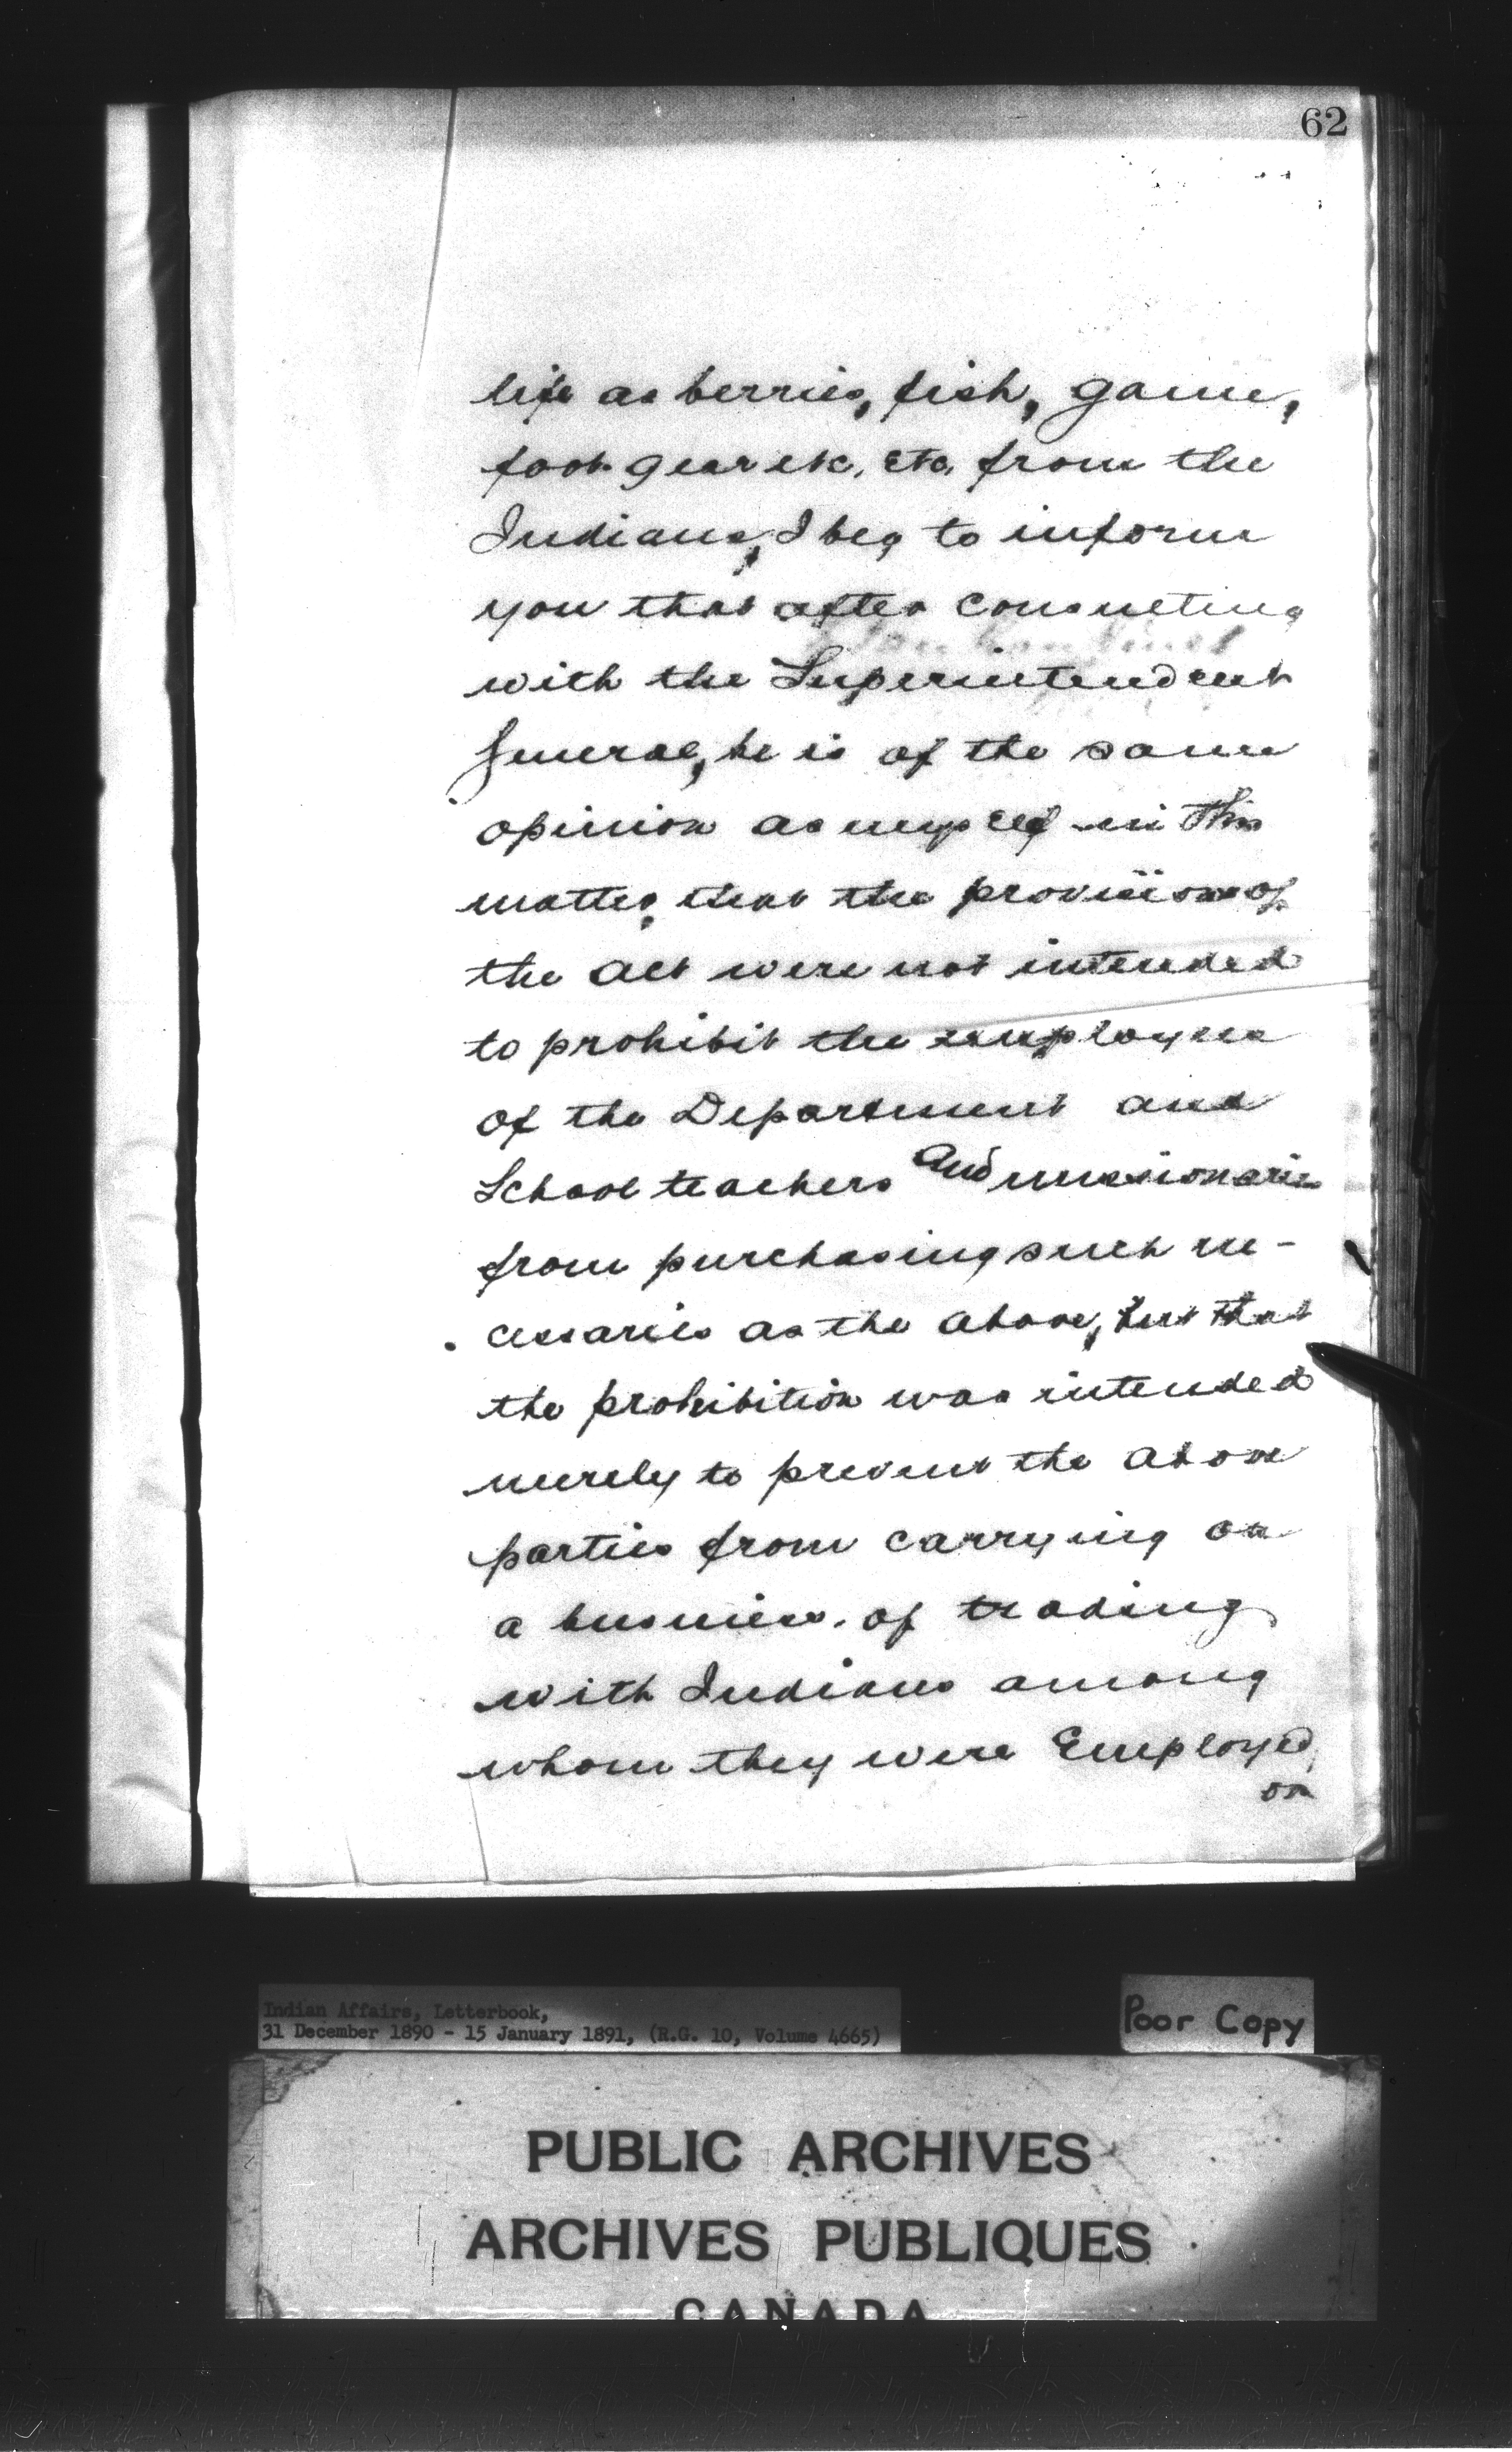 62
life as berries, fish, game,
foot gear etc, etc, from the
Indians, I beg to inform
you that after consulting
with the Superintendent
General, he is of the same
opinion as myself in this
matter, that the provisions of
the act were not intended
to prohibit the employees
of the Department and
School teachers and missionaries
from purchasing such ne-
cessaries as the above, but that
the prohibition was intended
merely to prevent the above
parties from carrying on
a business of trading
with Indians among
whom they were Employed,
or
Indian Affairs, Letterbook,
31 December 1890 - 15 January 1891, (R.G. 10, Volume 4665)
Poor Copy
PUBLIC ARCHIVES
ARCHIVES PUBLIQUES
CANADA